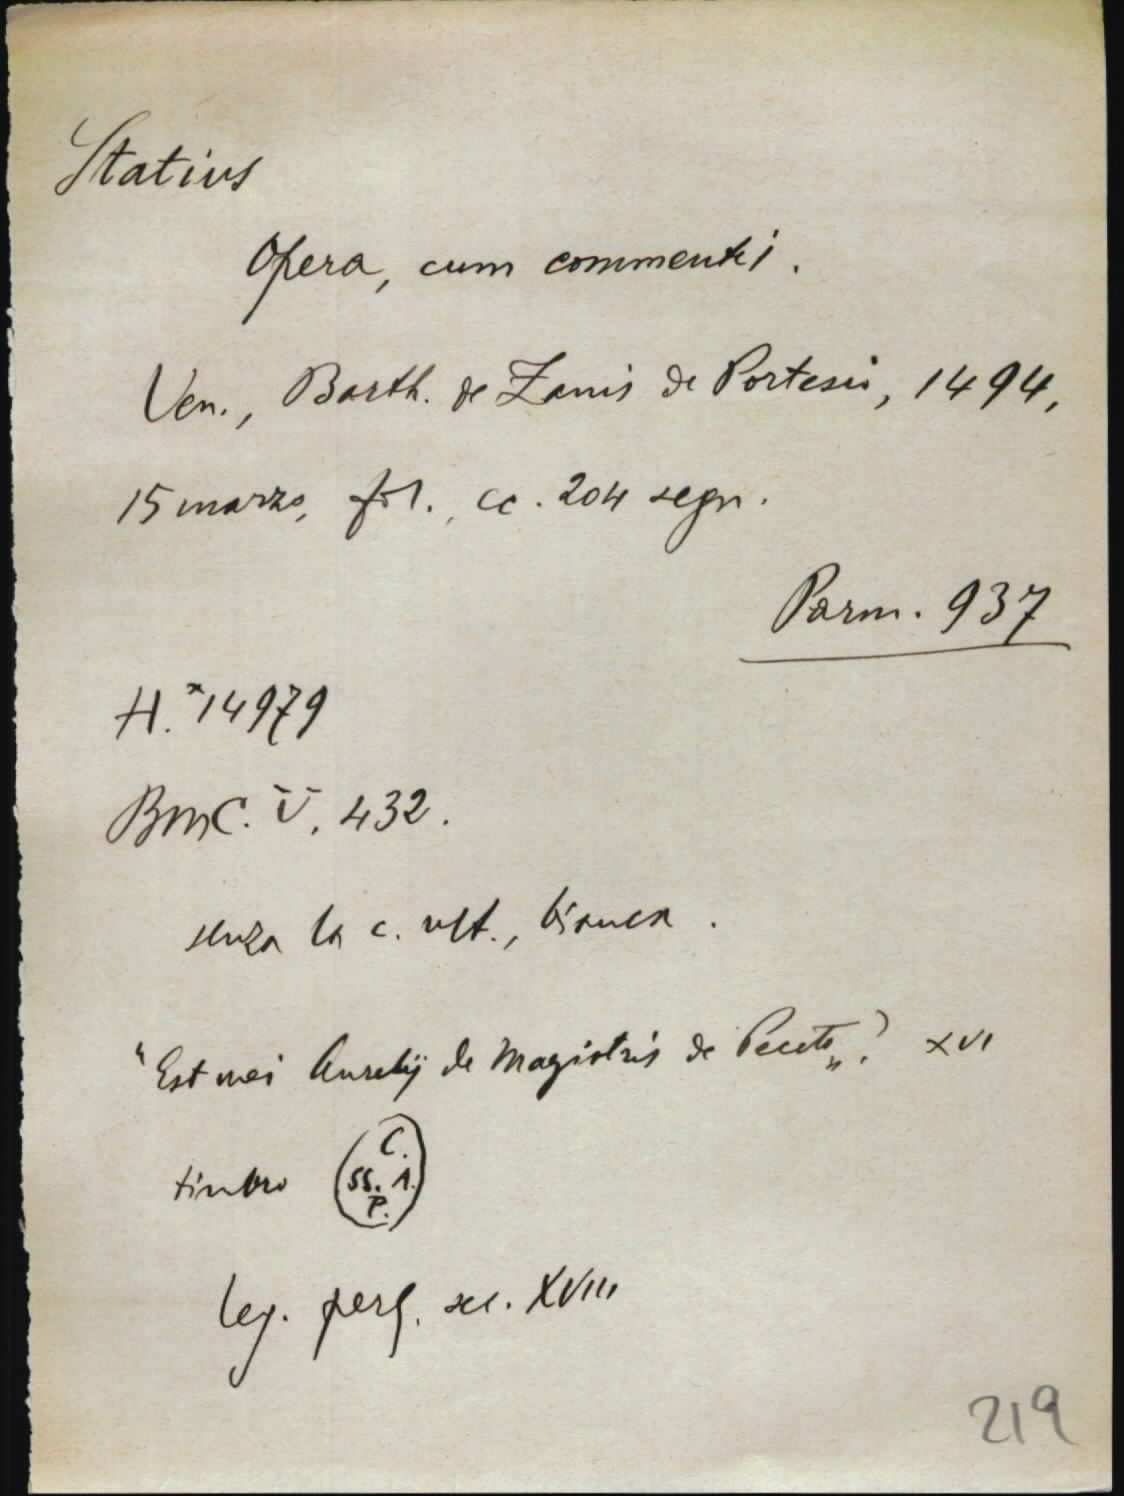 Statius
Opera, cum commentis.
Ven., Barth. de Zanis de Portesio, 1494,
15 marzo, fol., cc. 204 segn.
Parm. 937
H. *14979
BMC. V, 432.
senza la c. ult., bianca.
"Est mei Aurelij de Magistris de ? XVI
timbro C.
SS. A.
P.
leg. perg. sec. XVIII
219